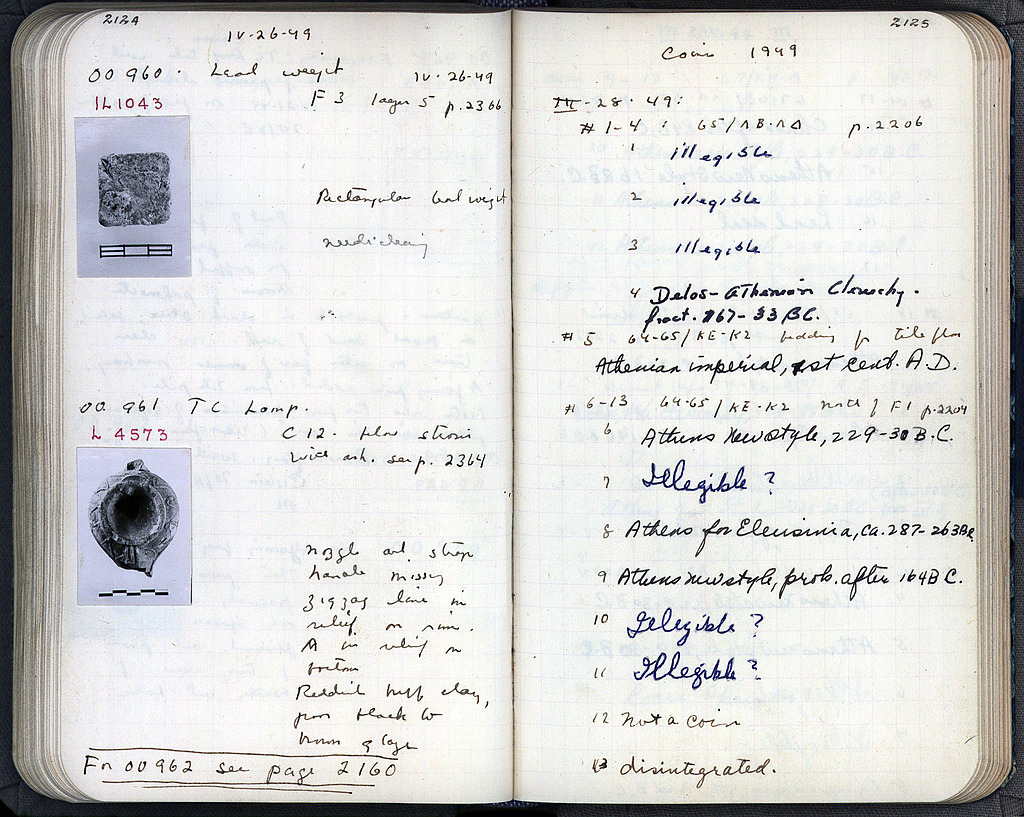 2124
IV-26-49
OO 960. Lead weight IV-26-49
IL1043 F3 layer 5 p.2366
Rectangular lead weight
needs cleaning
OO 961 TC Lamp.
L 4573 C12. floor strosis
with ash. see p. 2364
nozzle and strap
handle missing
zigzag line in
relief on rim.
A in relief on
bottom
Reddish buff clay,
from black to
brown glaze
For OO 962 see page 2160
2125
Coins 1949
III-28-49:
#1-4: 65/ΛB-ΛΔ p.2206
1 illegible
2 illegible
3 illegible
4 Delos-Athenian Cleruchy.
fract. 167-33 BC.
#5 64-65/KE-KZ bedding for tile floor
Athenian imperial, 1st cent. A.D.
#6-13 64-65/KE-KZ north of F1 p.2204
6 Athens New style, 229-30 B.C.
7 Illegible?
8 Athens for Eleusinia, ca. 287-263 BC
9 Athens newstyle, prob. after 164 B C.
10 Illegible?
11 Illegible?
12 not a coin
13 disintegrated.